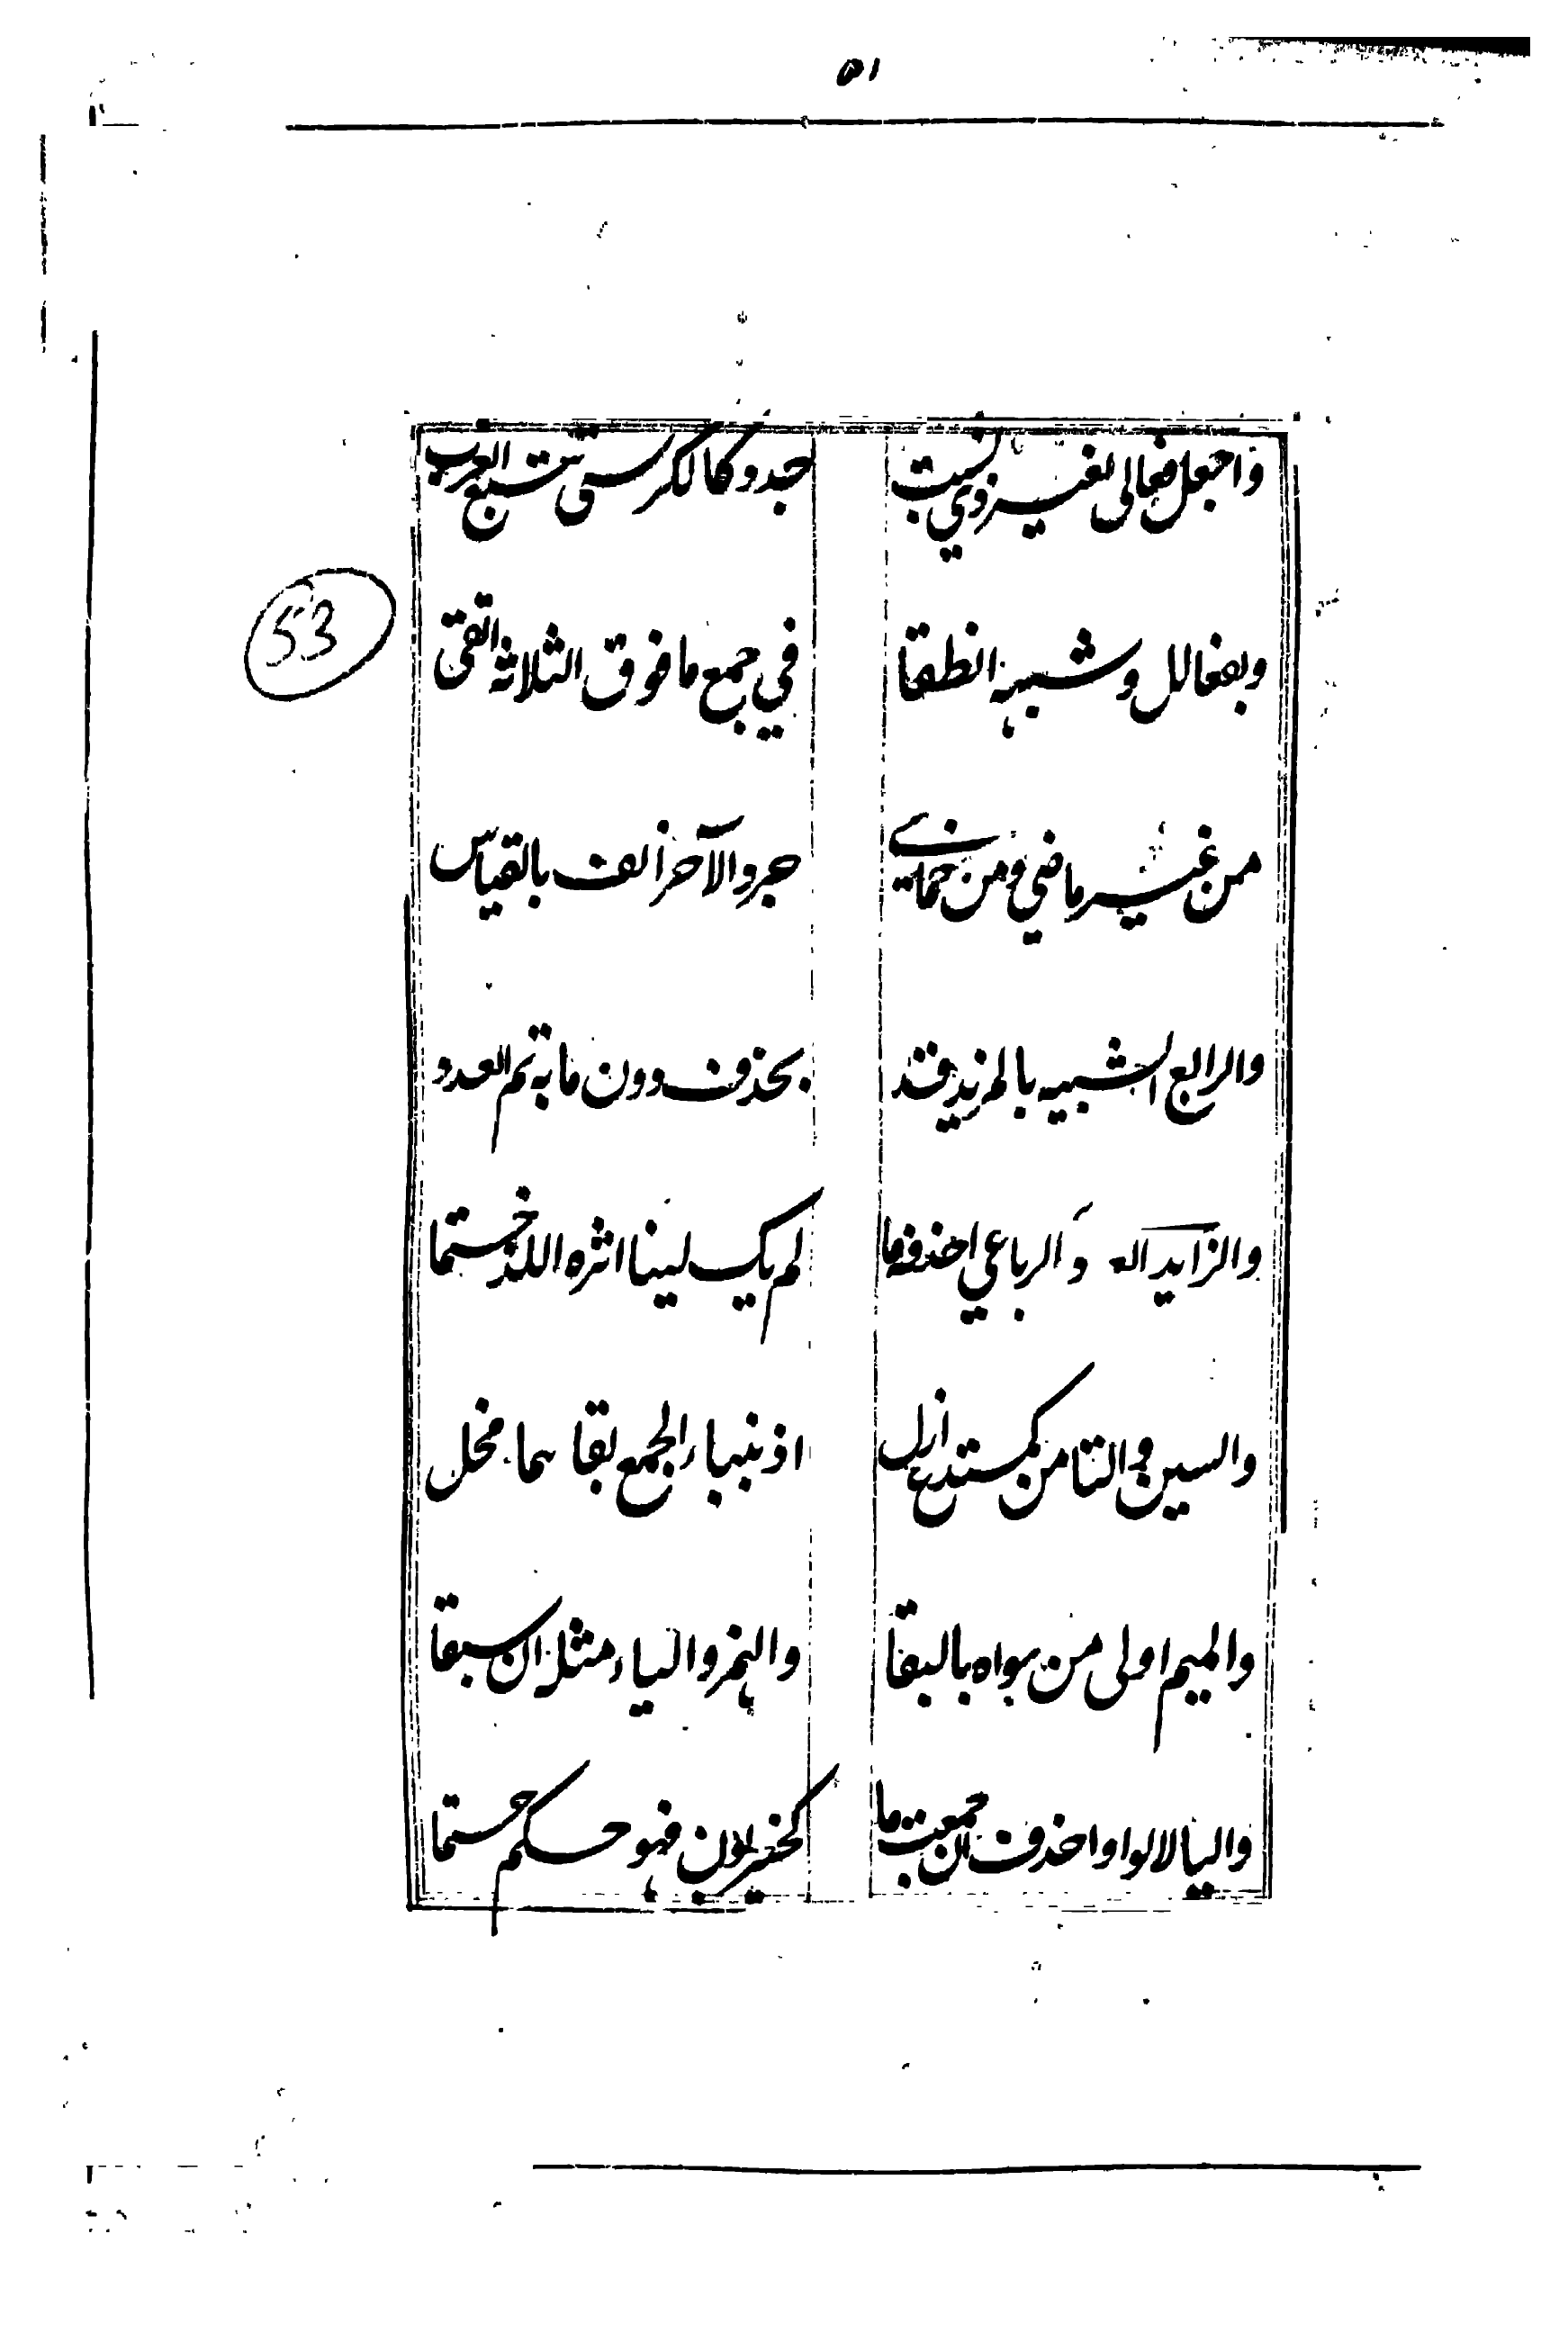 ٥١
واجعل فعالى لغير ذي نسب جدد كالكرسي تتبع العرب
53
وبفعالل وشبهه انطقا في جمع ما فوق الثلاثة اتقى
من غير ما مضي ومن خماسي جرد الآخر انف بالقياس
والرابع الشبيه بالمزيد قد بحذف دون ما به تم العدد
والزايد اله و الرباعي احذفه ما لم يك لينا اثره اللذ ختما
والسين والتا من كمستدع ازل اذ ببناء الجمع بقاهما مخل
والميم اولى من سواه بالبقا والهمز والياء مثله ان سبقا
واليا لا الواو احذف ان جمعت ما كحيزبون فهو حكم حتما